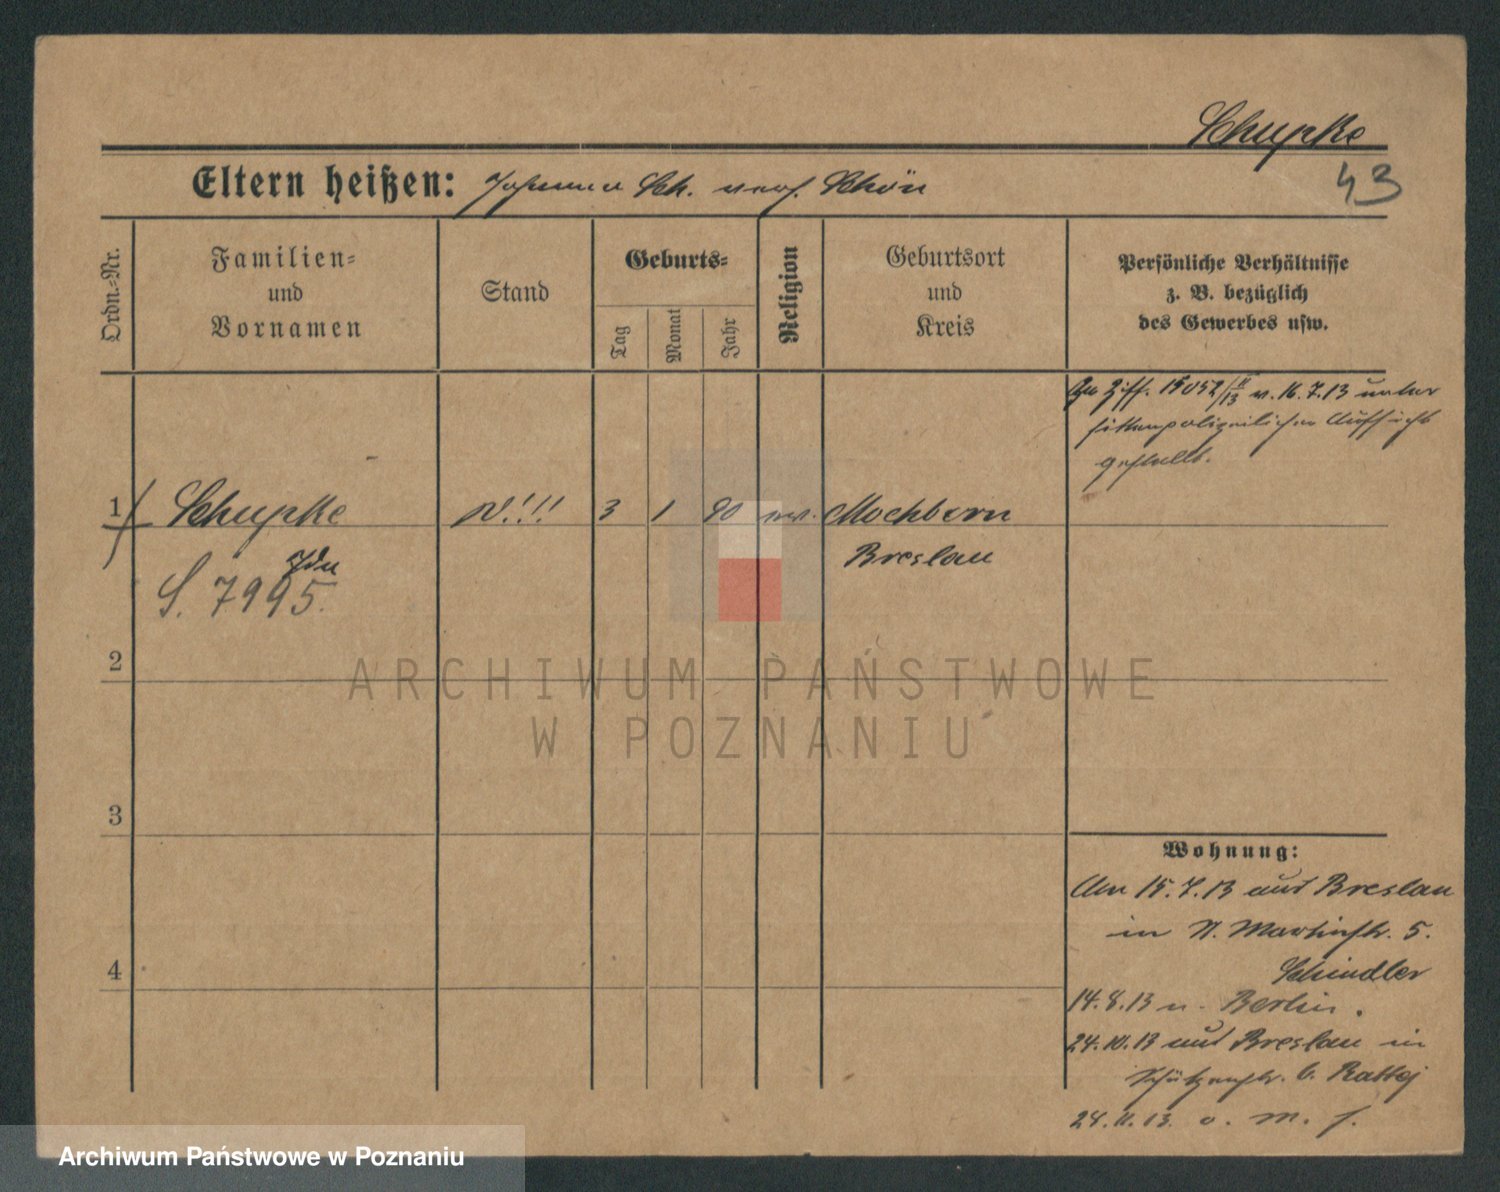 Schupke
43
Eltern heißen: Johanna Sch. verh. Schön
Ordn.-Nr.
Familien-
und
Vornamen
Stand
Geburts-
Tag
Monat
Jahr
Religion
Geburtsort
und
Kreis
Persönliche Verhältnisse
z. B. bezüglich
des Gewerbes usw.
Zu Ziff. 15052/II 13 v. 16.7.13 unter
sittenpolizeilicher Aufsicht
gestellt.
1 Schupke !!! 3 1 90 ev. Mochbern
Ida Breslau
S. 7995.
2
3
4
Wohnung:
Am 15.7.13 aus Breslau
in St. Martinstr. 5.
Schindler
14.8.13 n. Berlin.
24.10.13 aus Breslau in
Schützenstr. b. Rattaj
24.11.13. o. m. f.
ARCHIWUM PAŃSTWOWE
W POZNANIU
Archiwum Państwowe w Poznaniu